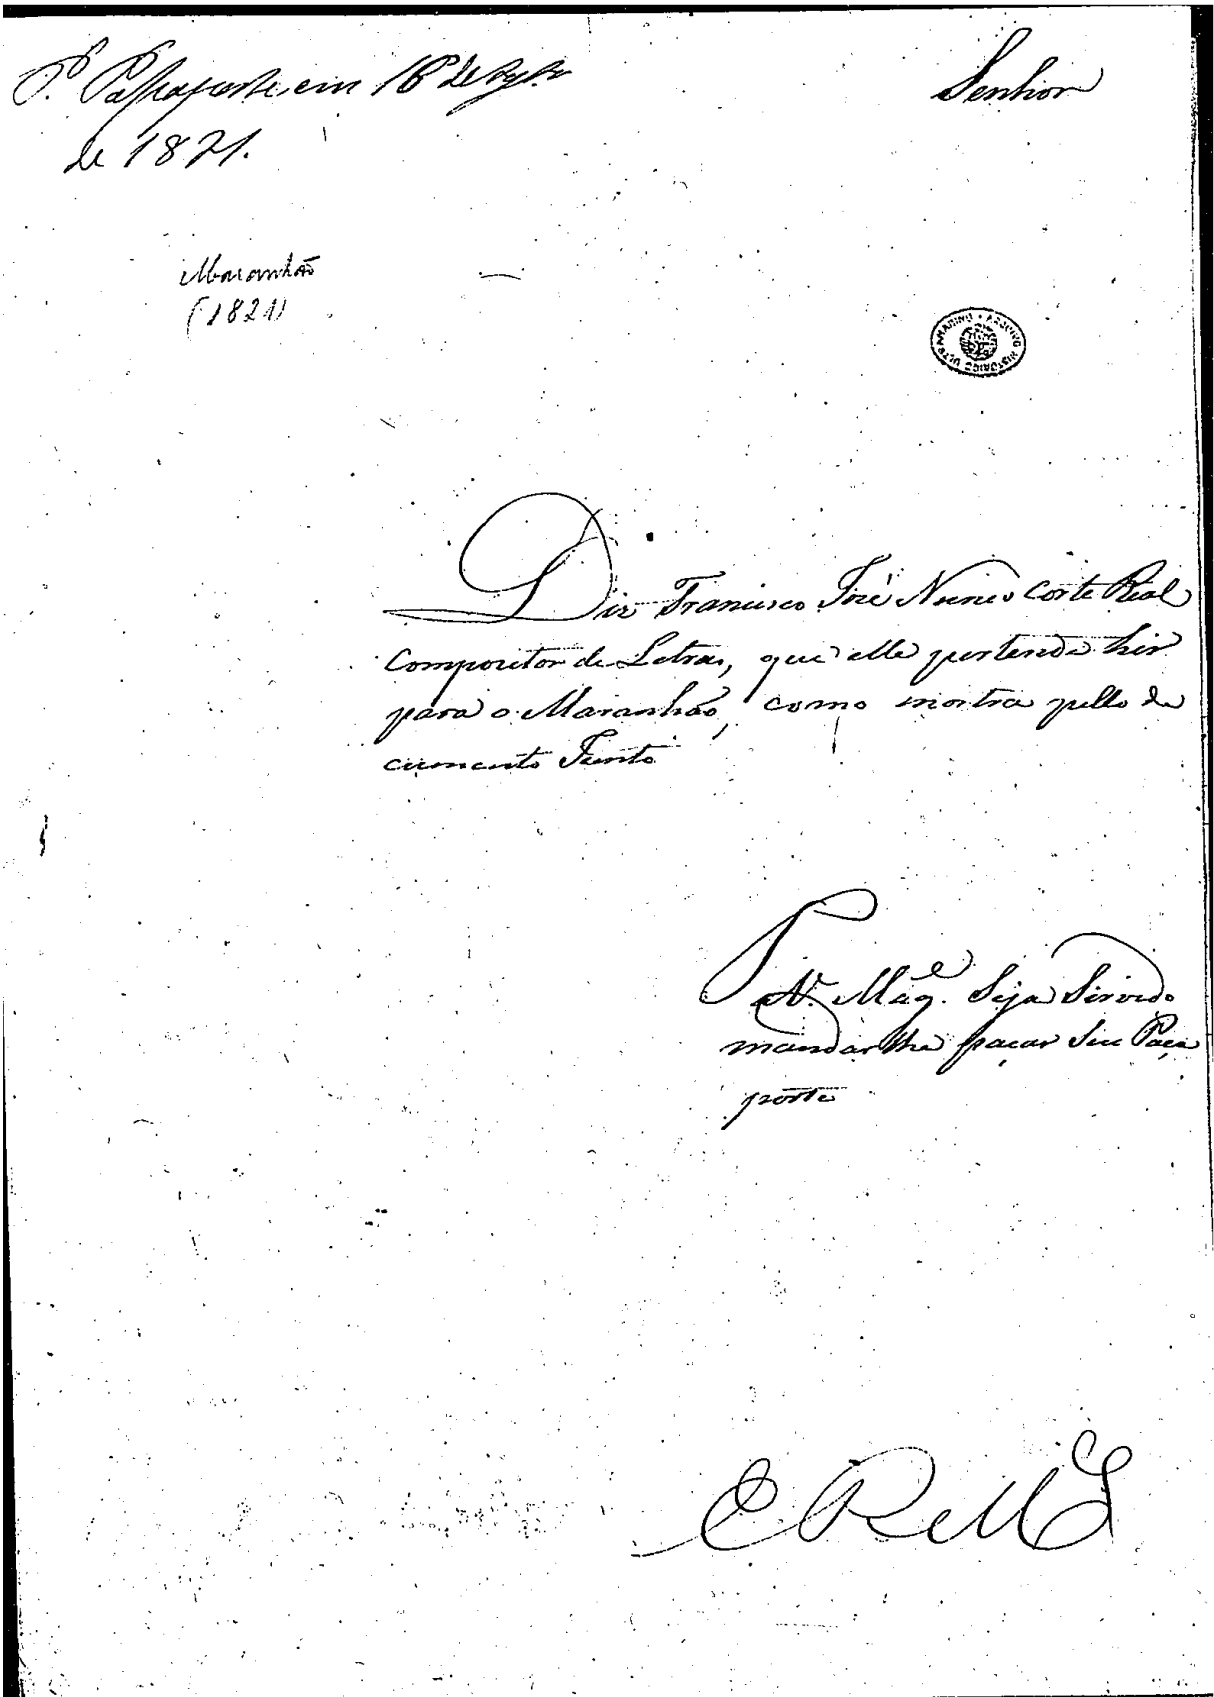 P. Passaporte em 18 de
de 1821.
Senhor
Maranhão
(1821)
ARQUIVO HISTÓRICO ULTRAMARINO
Diz Francisco José Nunes Corte Real
Compozitor de Letras, que elle pertende hir
para o Maranhão, como mostra pello do
cumento Junto
P.
A V. Mag.e Seja Servido
mandar lhe paçar seu Paça
porte
E R Mce